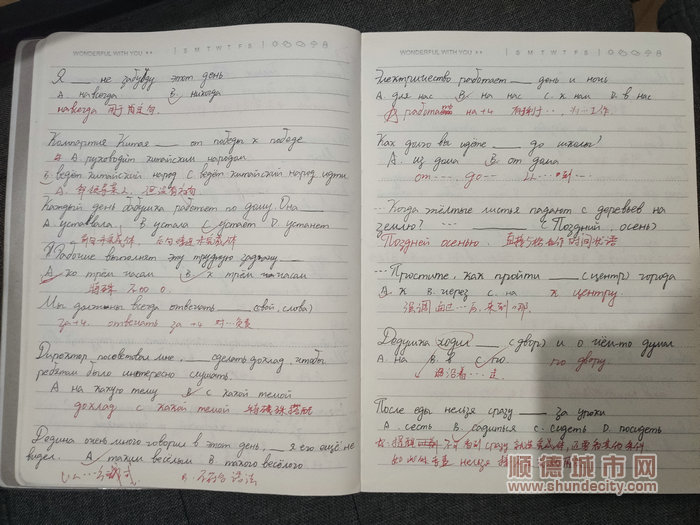 WONDERFUL WITH YOU
S M T W T F S
Я ___ не забуду этот день
А. навсегда В. никогда
навсегда 用于肯定句.
Компартия Китая ___ от победы к победе
А. руководит китайским народом
В. ведёт китайский народ С. ведёт китайский народ идти
Каждый день бабушка работает по дому. Она ___
А. уставала. В. устала С. устаёт D. устанет
Рабочие выполнят эту трудную задачу ___
А. ко трём часам В. к трём часам
Мы должны всегда отвечать ___ (свой, слова)
за+4. отвечать за +4 对…负责
Директор посоветовал мне, ___ сделать доклад, чтобы
ребятам было интересно слушать.
А. на какую тему В. с какой темой
доклад с какой темой 特殊搭配
Дедушка очень много говорил в этот день, ___ я его ещё не
видел. А. таким весёлым В. такого весёлого
В. 不符合语法
WONDERFUL WITH YOU
S M T W T F S
Электричество работает ___ день и ночь
А. для нас В. на нас С. к нам D. в нас
работать на+4
Как долго вы идёте ___ до школы?
А. из дома В. от дома
от … до … 从…到…
Когда жёлтые листья падают с деревьев на
землю? ___ (Поздний, осень)
Поздней осенью. 直接 时间状语
Простите, как пройти ___ (центр) города
А. к В. через С. на к центру
强调
Дедушка ходил ___ (двор) и о чём-то думал
А. на В. в С. по. по двору
沿着…走
После еды нельзя сразу ___ за уроки
А. сесть В. садиться С. сидеть D. посидеть
顺德城市网
www.shundecity.com